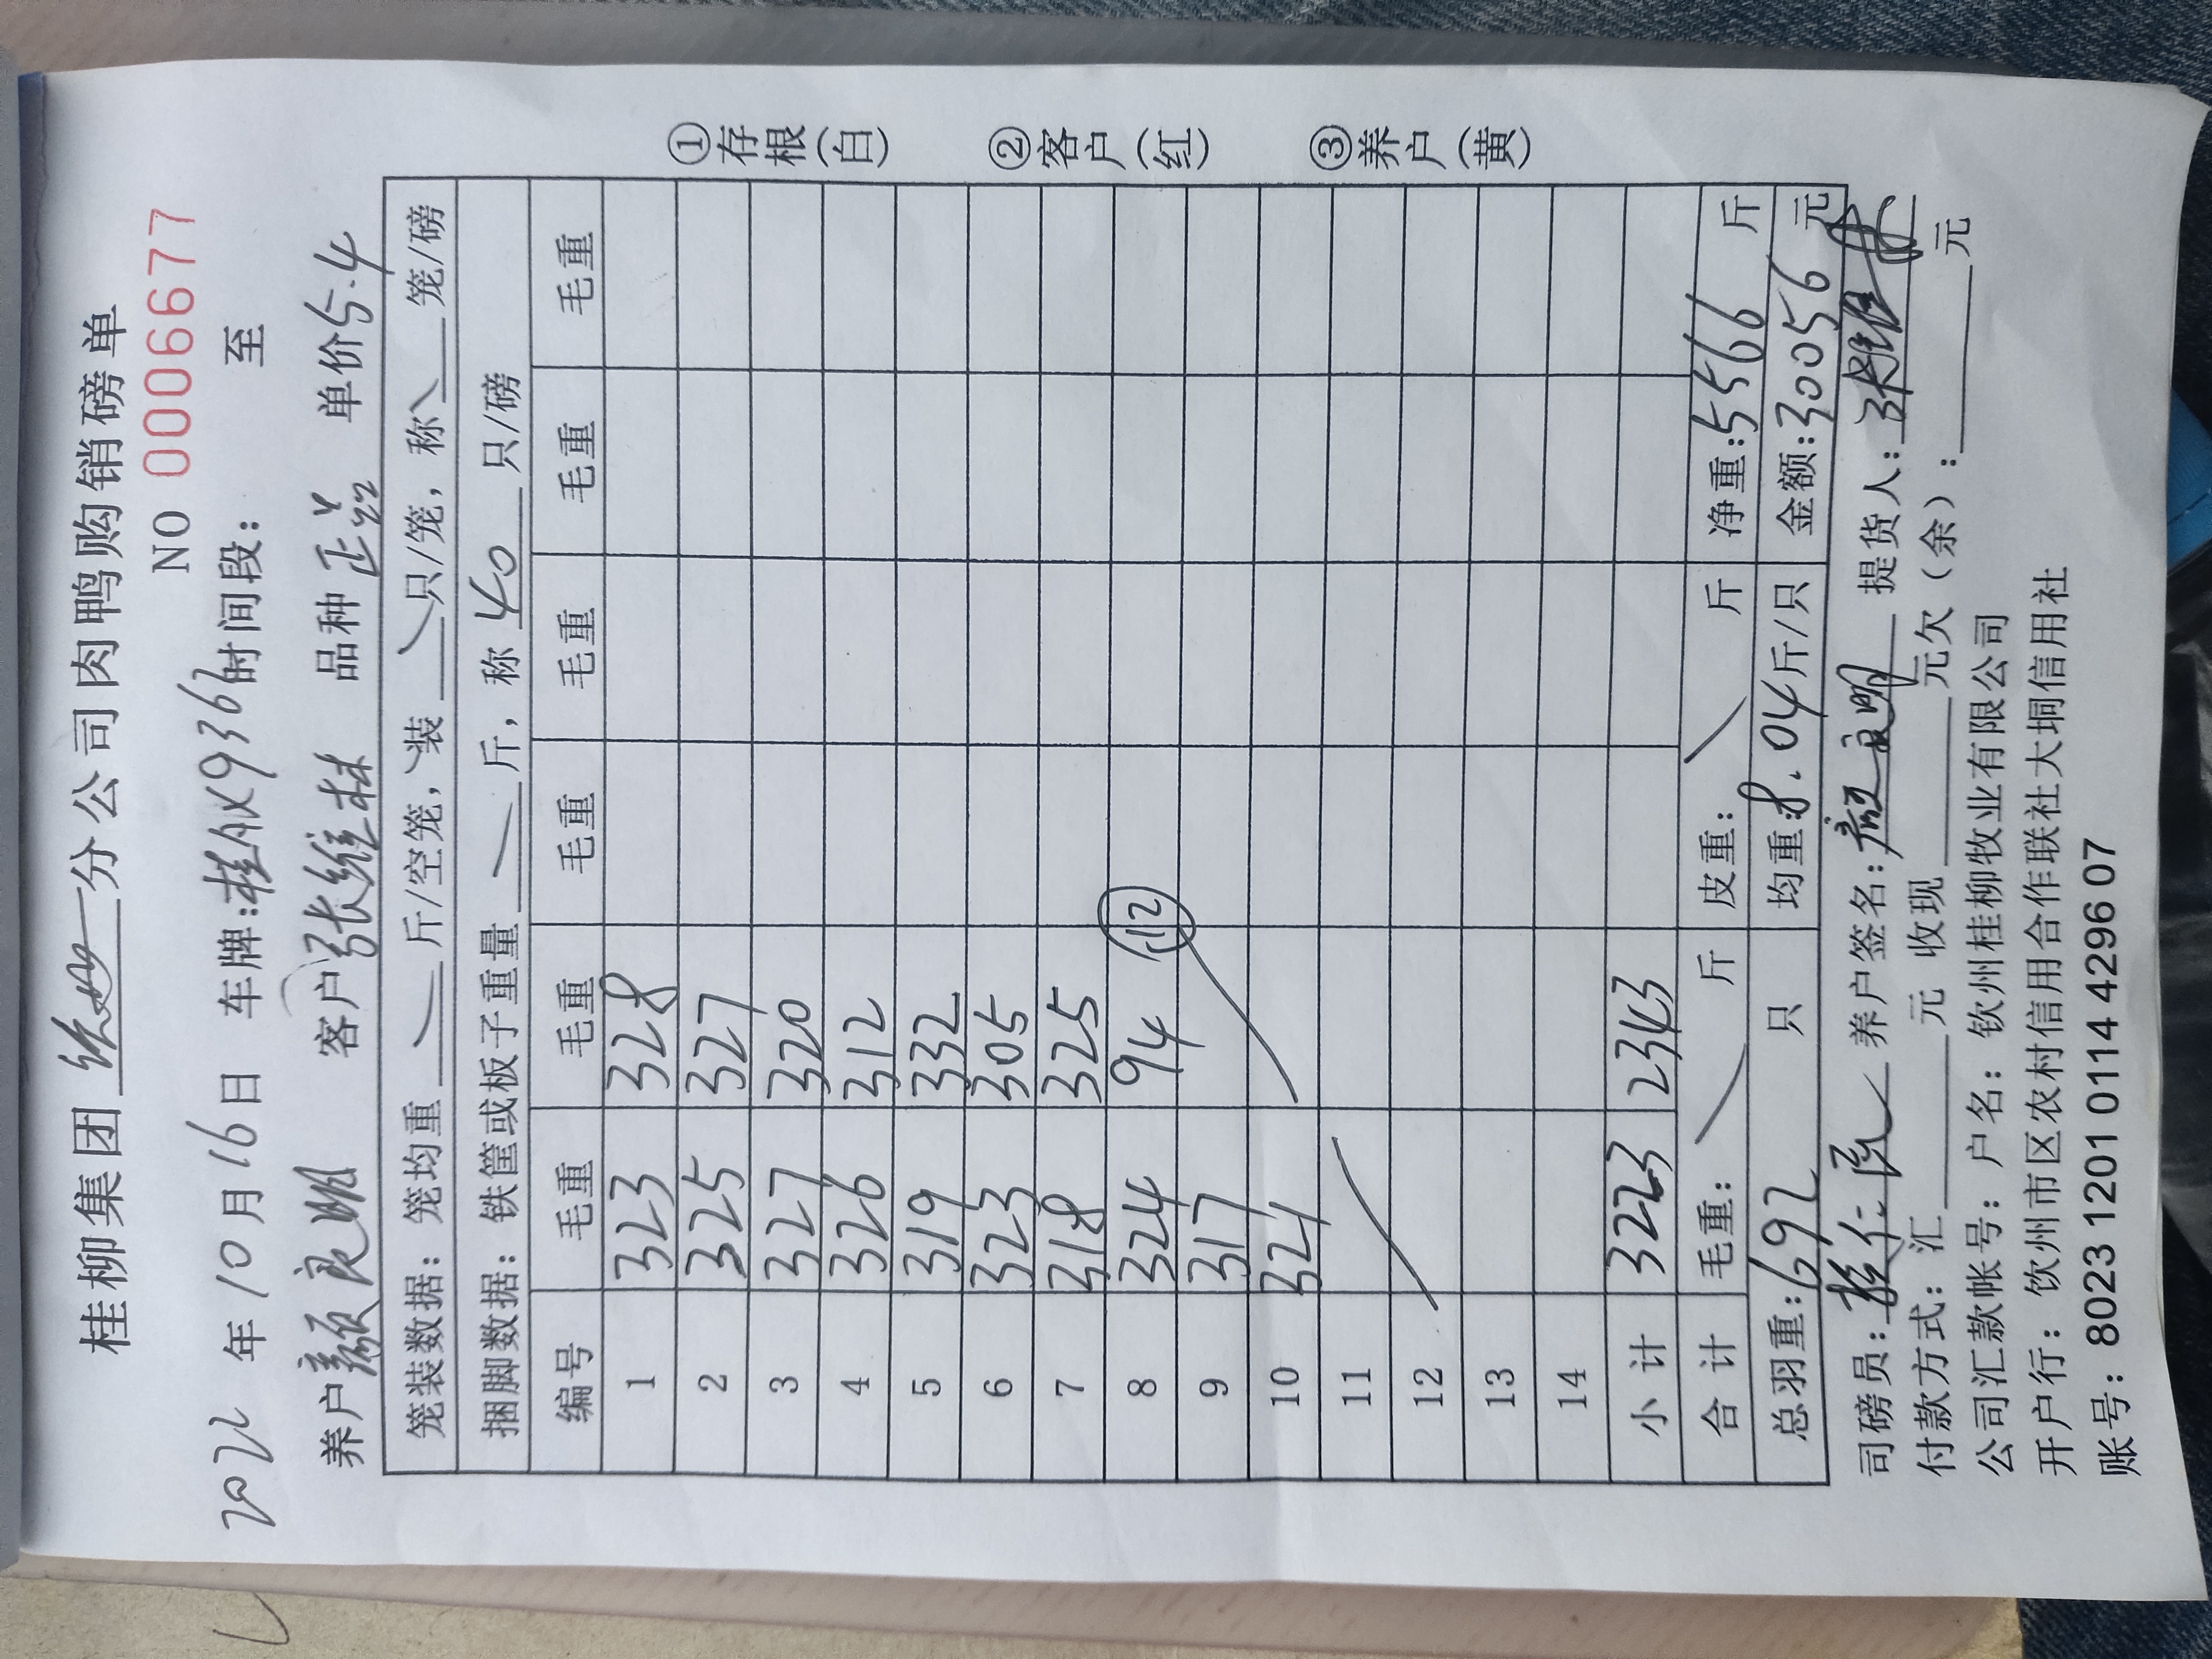 桂柳集团 分公司肉鸭购销磅单
NO 0006677
2022年10月16日 车牌:桂 9363 时间段: 至
养户 颜良明 客户 张维林 品种 正 单价 5.4
笼装数据: 笼均重 斤/空笼,装 只/笼,称 笼/磅
捆脚数据: 铁筐或板子重量 斤,称 40 只/磅
编号 毛重 毛重 毛重 毛重 毛重 毛重
1 323 328
2 325 327
3 327 320
4 326 312
5 319 332
6 323 305
7 318 325
8 324 94 (12)
9 317
10 321
11
12
13
14
小计 3223 2343
合计 毛重: 斤 皮重: 斤 净重:5566 斤
总羽重:692 只 均重:8.04斤/只 金额:30056元
司磅员: 养户签名:颜良明 提货人:张维林
付款方式:汇 元 收现 元欠(余): 元
公司汇款帐号:户名:钦州桂柳牧业有限公司
开户行:饮州市区农村信用合作联社大垌信用社
账号:8023 1201 0114 4296 07
①存根(白) ②客户(红) ③养户(黄)